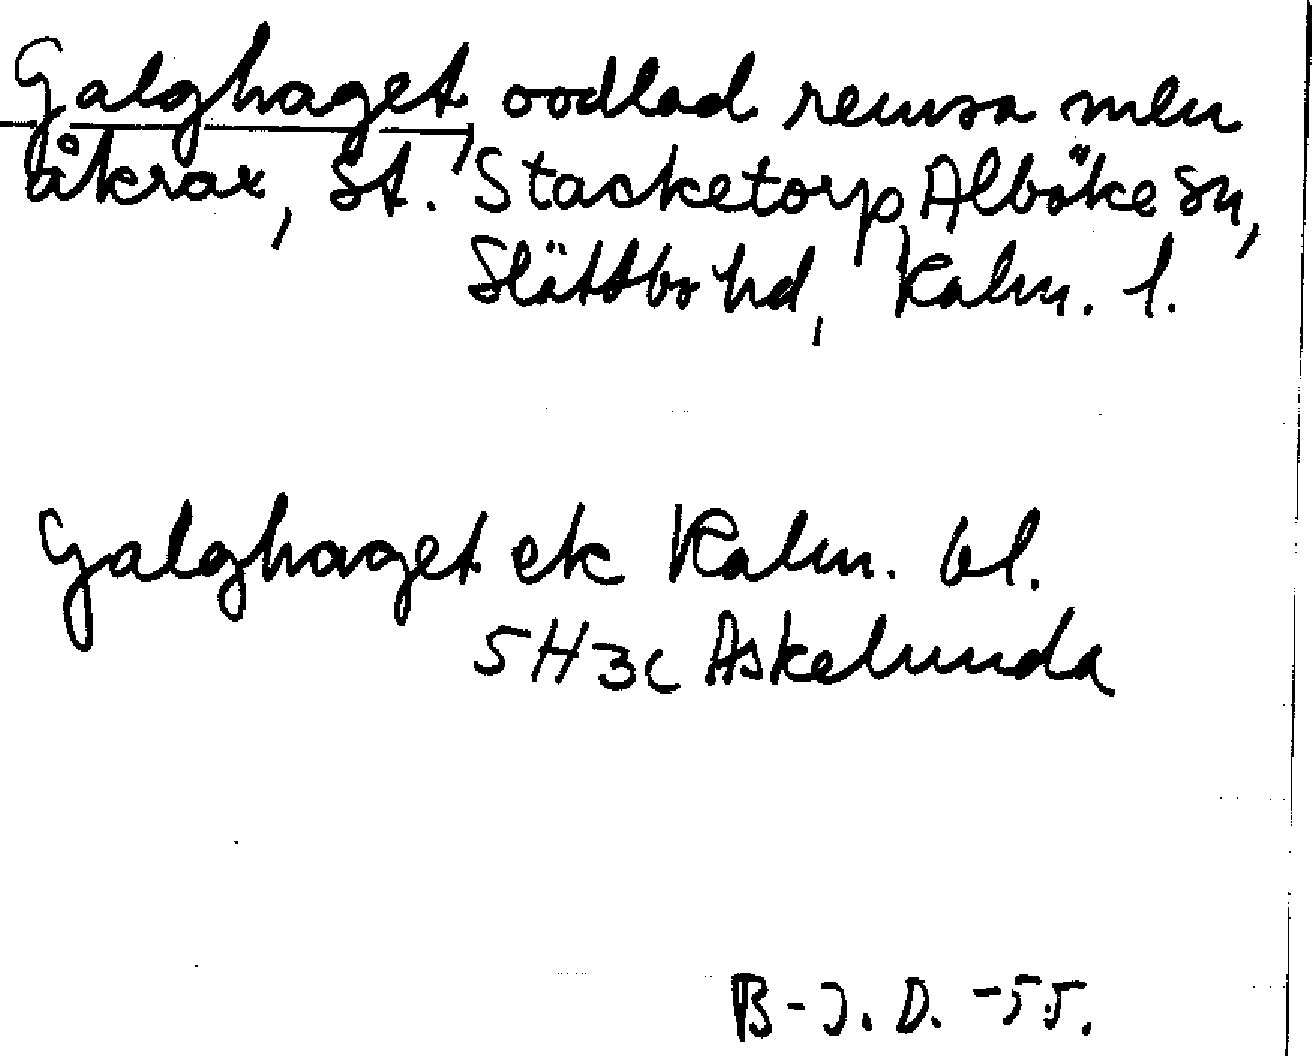 Galghaget, oodlad remsa mellan
åkrar, St. Stacketorp, Alböke sn,
Slättbo hd, Kalm. l.
Galghaget ek Kalm. bl.
5H3c Askelunda
B-J. D. -55.